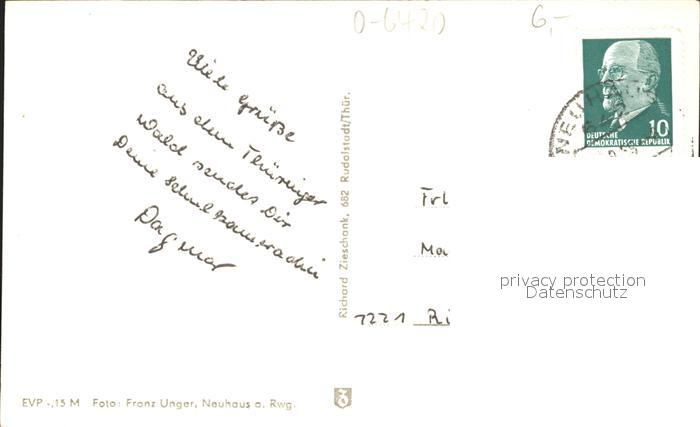 0-6420
6,-
Viele Grüße
aus dem Thüringer
Wald sendet Dir
Deine Schulkameradin
Dagmar
Richard Zieschank, 682 Rudolstadt/Thür.
NEUHAUS
10
DEUTSCHE
DEMOKRATISCHE REPUBLIK
Frl
Ma
privacy protection
Datenschutz
7221 Ri
EVP -,15 M Foto: Franz Unger, Neuhaus a. Rwg.